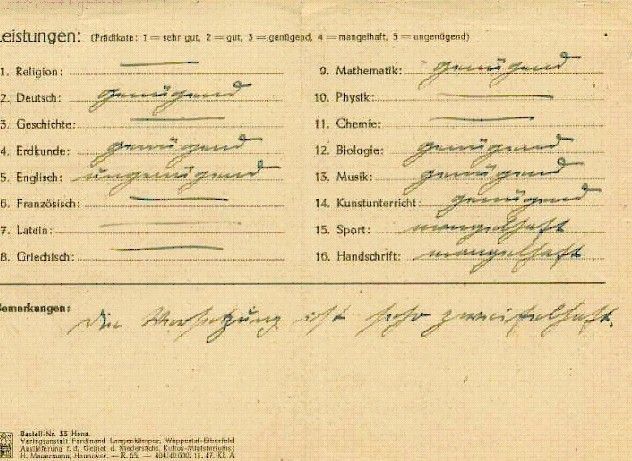 Leistungen: (Prädikate: 1 = sehr gut, 2 = gut, 3 = genügend, 4 = mangelhaft, 5 = ungenügend)
1. Religion: —
2. Deutsch: genügend
3. Geschichte: —
4. Erdkunde: genügend
5. Englisch: ungenügend
6. Französisch: —
7. Latein: —
8. Griechisch: —
9. Mathematik: genügend
10. Physik: —
11. Chemie: —
12. Biologie: genügend
13. Musik: genügend
14. Kunstunterricht: genügend
15. Sport: mangelhaft
16. Handschrift: mangelhaft
Bemerkungen:
Die Versetzung ist sehr zweifelhaft.
Bestell-Nr. 35 Hann.
Verlagsanstalt Ferdinand Wuppertal-Elberfeld
Auslieferung f. d. Gebiet d. Niedersächs. Kultus-Ministeriums:
Hannover. — R. 55. — 11. 47. Kl. A